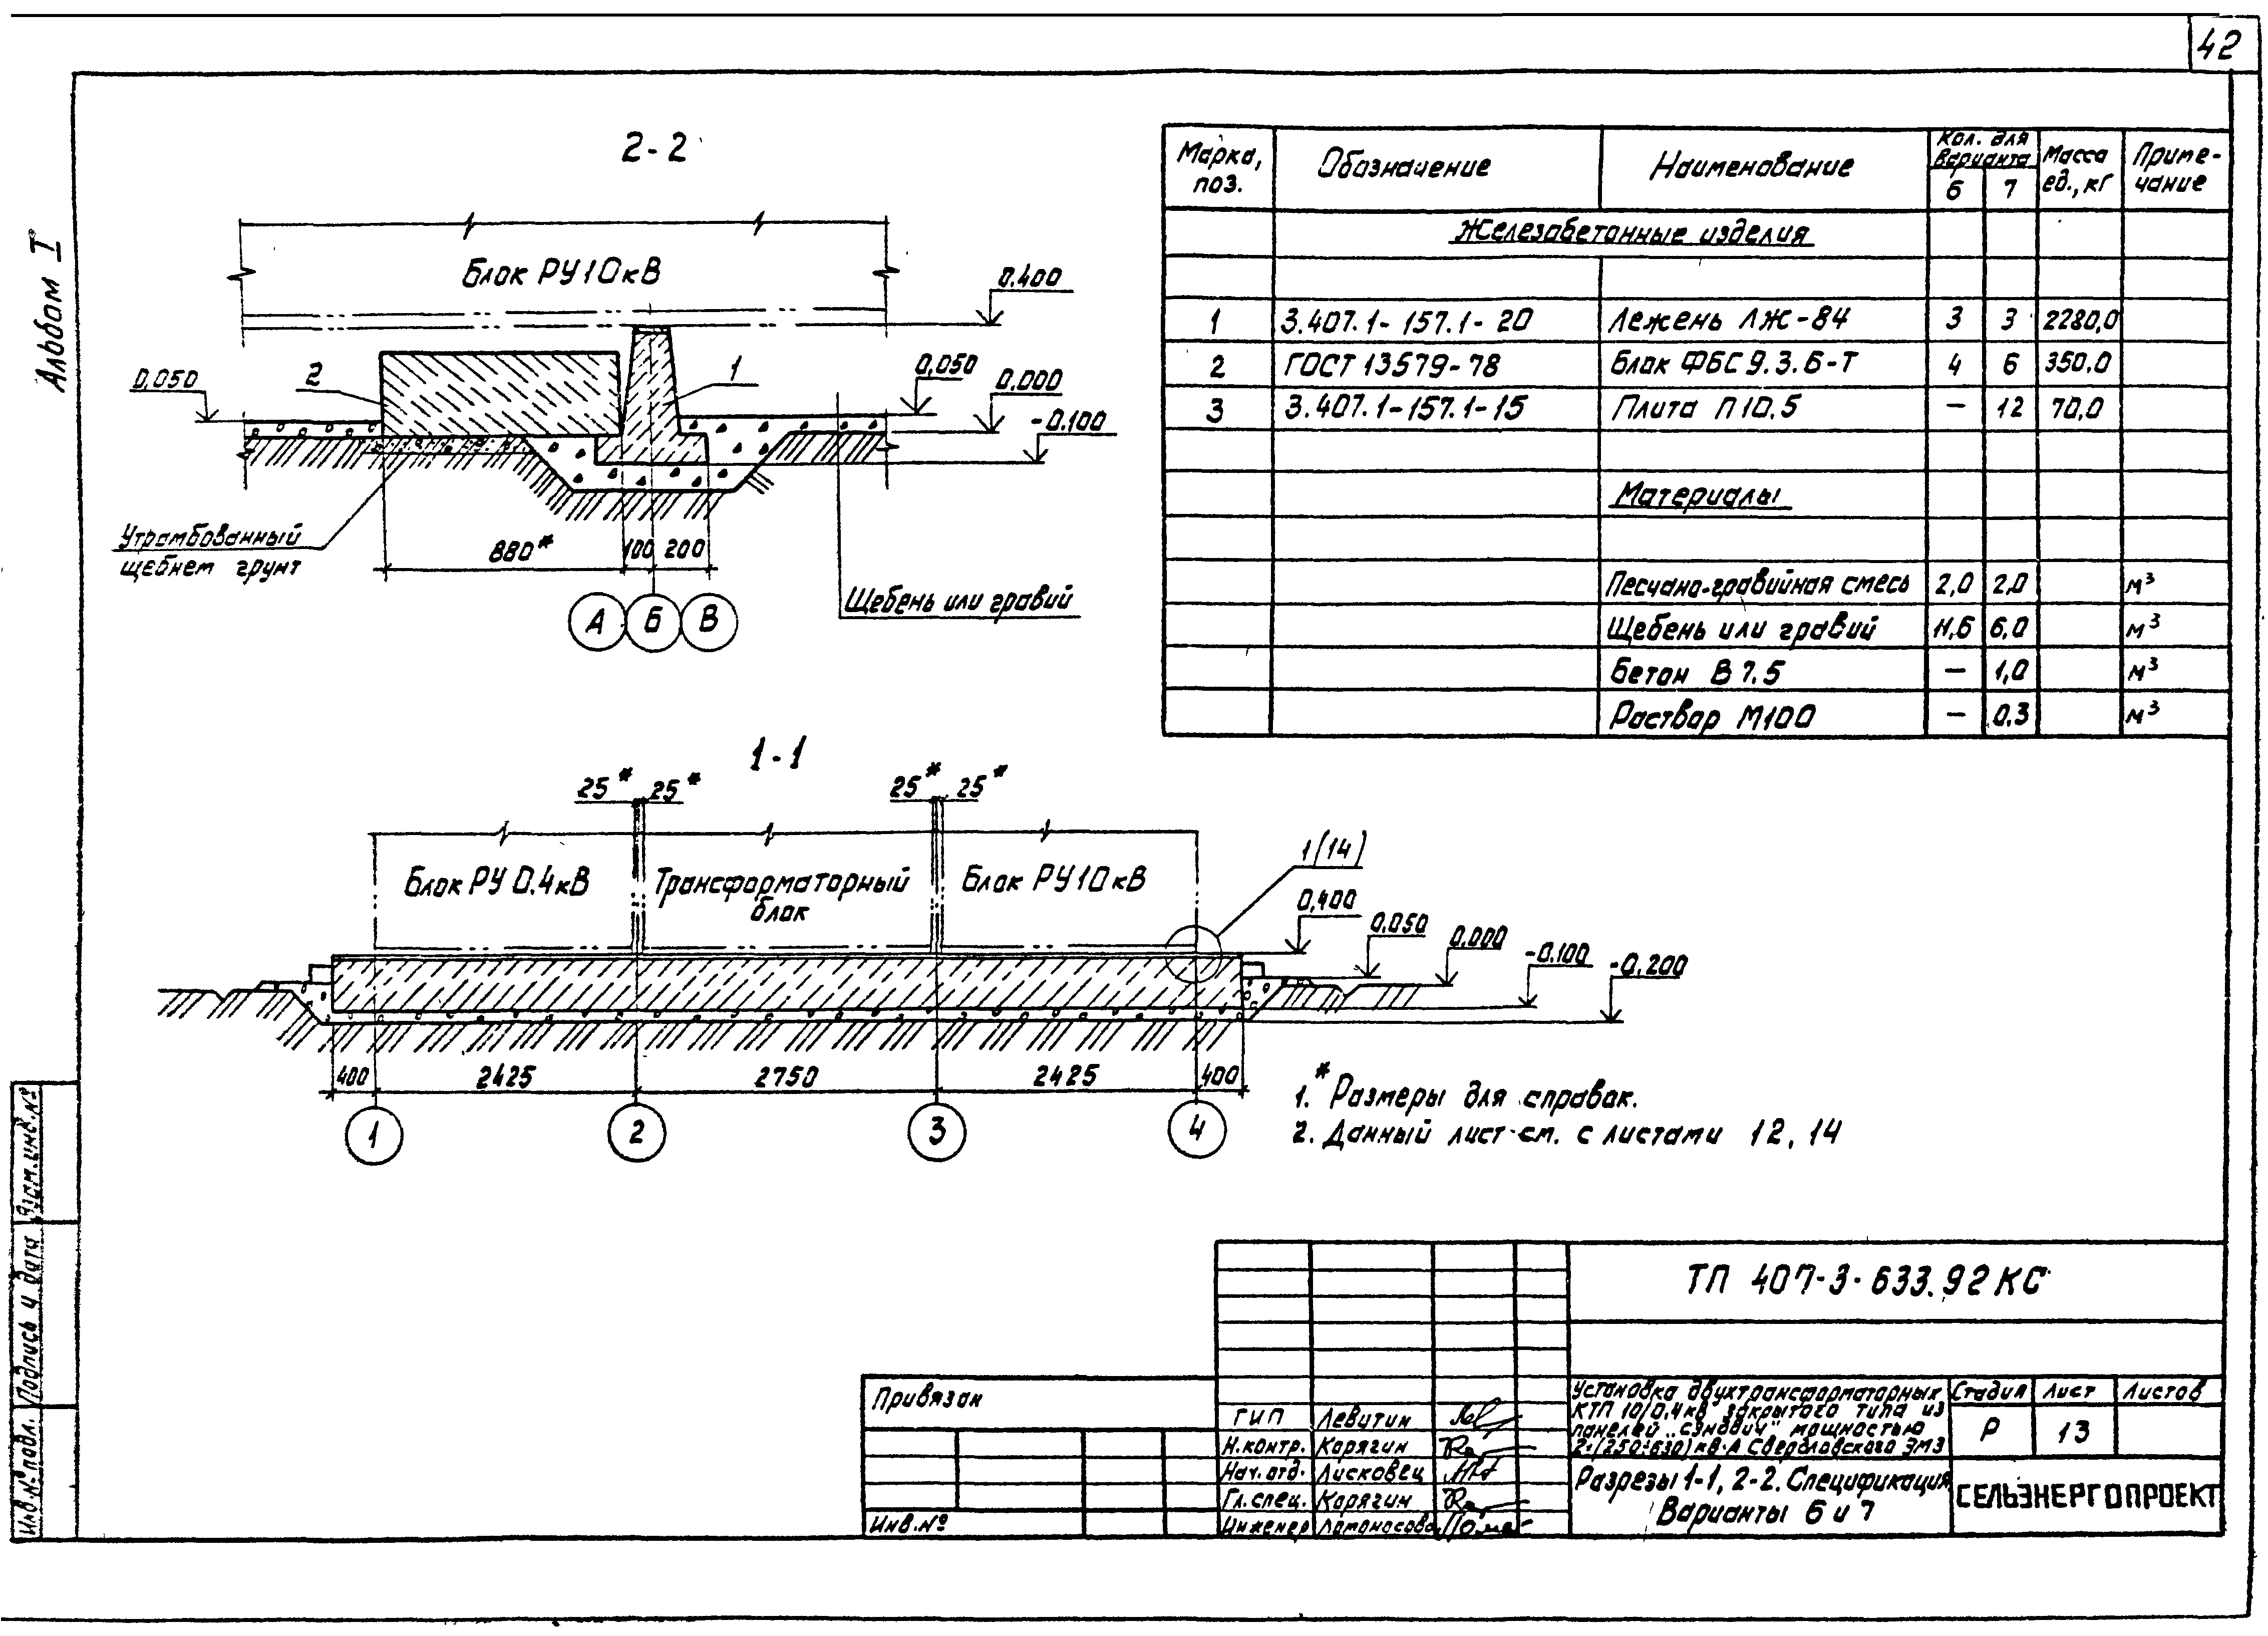 42
Альбом I
2-2
Блок РУ10кВ
0.400
0,050
2
1
0,050
0,000
-0.100
Утрамбованный
щебнем грунт
880*
100
200
А
Б
В
Щебень или гравий
Марка, поз.
Обозначение
Наименование
Кол. для варианта
6
7
Масса ед., кг
Приме-чание
Железабетонные изделия
1 3.407.1-157.1-20 Лежень ЛЖ-84 3 3 2280,0
2 ГОСТ 13579-78 Блок ФБС 9.3.6-Т 4 6 350,0
3 3.407.1-157.1-15 Плита П10.5 — 12 70,0
Материалы
Песчано-гравийная смесь 2,0 2,0 м³
Щебень или гравий 6,0 м³
Бетон В 7.5 — 1,0 м³
Раствор М100 — 0,3 м³
1-1
25* 25*
25* 25*
Блок РУ 0.4кВ
Трансформаторный
блок
Блок РУ10кВ
1(14)
0,400
0.050
0.000
-0.100
-0.200
400
2425
2750
2425
400
1
2
3
4
1.* Размеры для справок.
2. Данный лист см. с листами 12, 14
ТП 407-3-633.92 КС
Привязан
Инв.№
ГИП Левитин
Н.контр. Карягин
Нач. отд. Лисковец
Гл. спец. Карягин
Инженер Ломоносова
Установка двухтрансформаторных
КТП 10/0,4кВ закрытого типа из
панелей „сэндвич" мощностью
2×(250÷630) кВ·А Свердловского ЭМЗ
Стадия
Лист
Листов
Р
13
Разрезы 1-1, 2-2. Спецификация
Варианты 6 и 7
СЕЛЬЭНЕРГОПРОЕКТ
Инв.№ подл.
Подпись и дата
Взам.инв.№